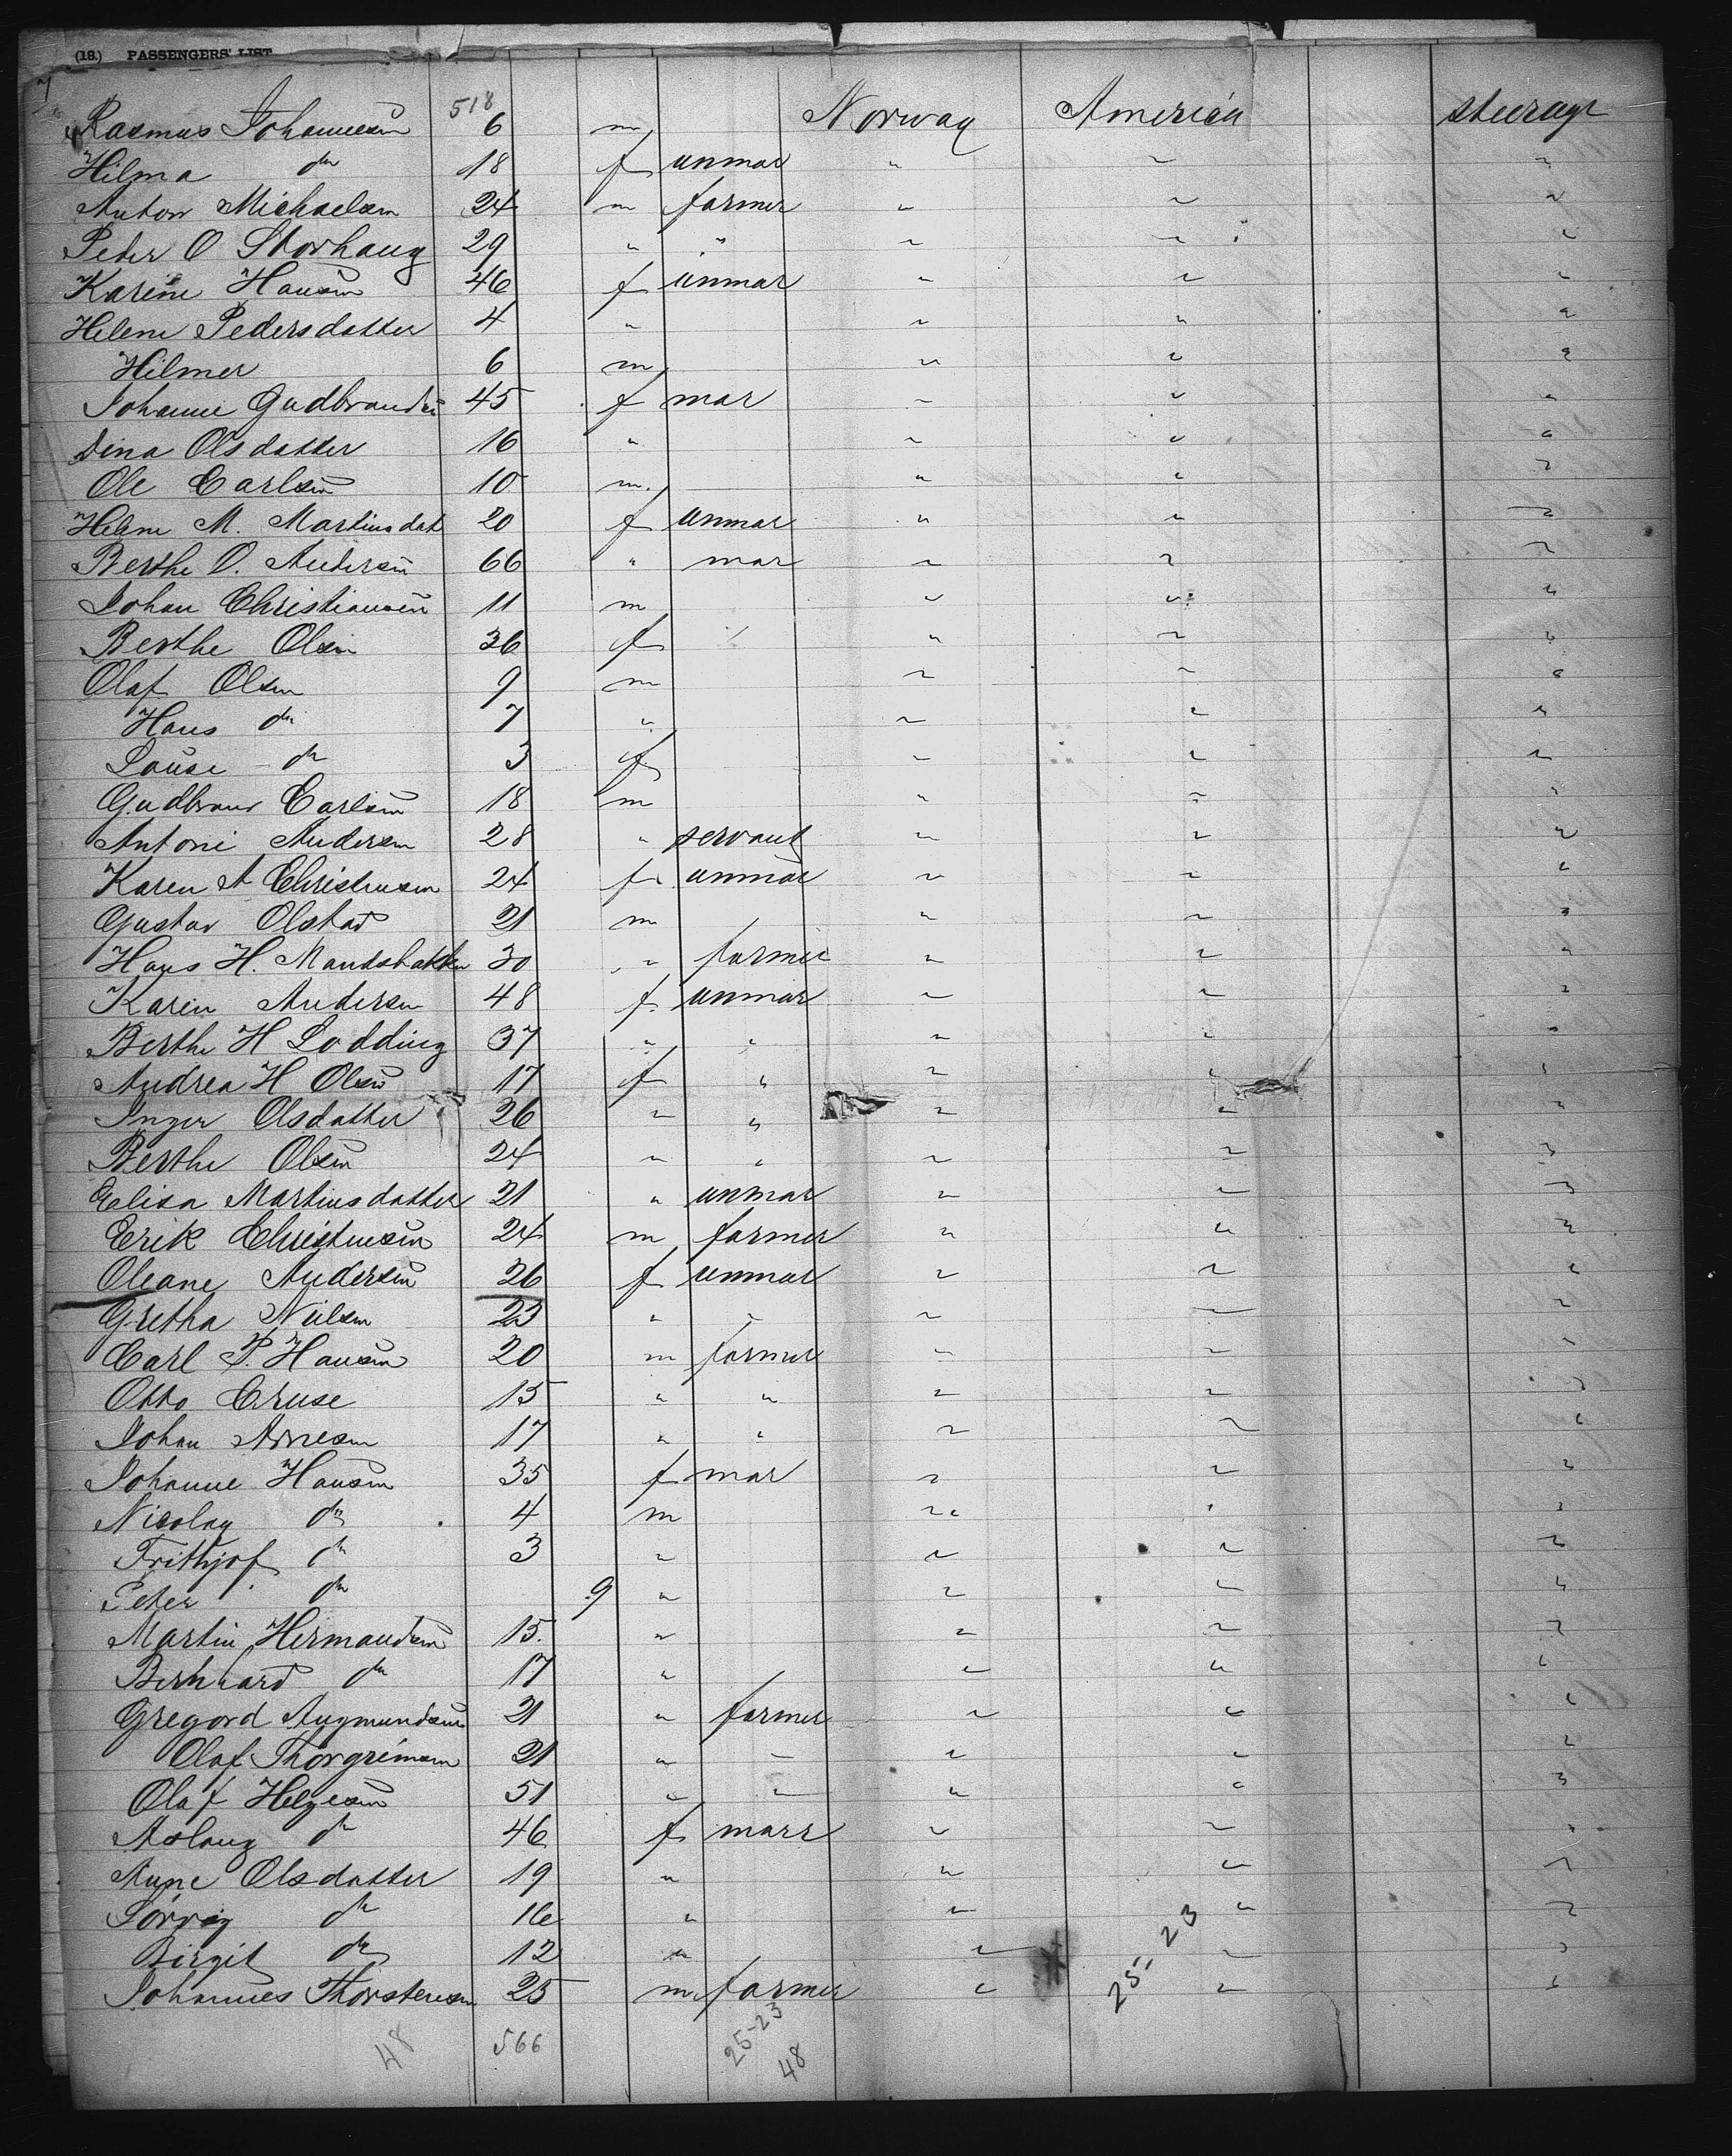 (18.) PASSENGERS' LIST
7
518
Rasmus Johannesen 6 m Norway America steerage
Hilma do 18 f unmar " " "
Anton Michaelsen 24 m farmer " " "
Peder O Storhaug 29 " " " " "
Karine Hansen 46 f unmar " " "
Helene Pedersdatter 4 " " " "
Hilmer 6 m " " "
Johanne Gudbrandsen 45 f mar " " "
Dina Olsdatter 16 " " " "
Ole Carlsen 10 m. " " "
Helene M. Martinsdat 20 f unmar " " "
Berthe O. Andersen 66 " mar " " "
Johan Christiansen 11 m " " "
Berthe Olsen 36 f " " "
Olaf Olsen 9 m " " "
Hans do 7 " " " "
Louise do 3 f " " "
Gudbrand Carlsen 18 m " " "
Antoni Andersen 28 " servant " " "
Karen A Christensen 24 f unmar " " "
Gustav Olstad 21 m " " "
Hans H. 30 " farmer " " "
Karen Andersen 48 f unmar " " "
Berthe H Lodding 37 " " " " "
Andrea H Olsen 17 f " " " "
Inger Olsdatter 26 " " " " "
Berthe Olsen 24 " " " " "
Elisa Martinsdatter 21 " unmar " " "
Erik Christensen 24 m farmer " " "
Oleane Andersen 26 f unmar " " "
Gretha Nielsen 23 " " " " "
Carl P. Hansen 20 m farmer " " "
Otto Cruse 15 " " " " "
Johan Arnesen 17 " " " " "
Johanne Hansen 35 f mar " " "
Nicolay do 4 m " " "
Frithjof do 3 " " " "
Peter do 9 " " " "
Martin Hermandsen 15. " " " "
Bernhard do 17 " " " "
Gregord Augmundsen 21 " farmer " " "
Olaf Thorgrimsen 21 " " " " "
Olaf Helgesen 51 " " " " "
Aslaug do 46 f marr " " "
Aune Olsdatter 19 " " " "
do 16 " " " "
Birgit do 12 " " " "
Johannes Thorstensen 25 m farmer " " "
25-23
48 566 25-23
48